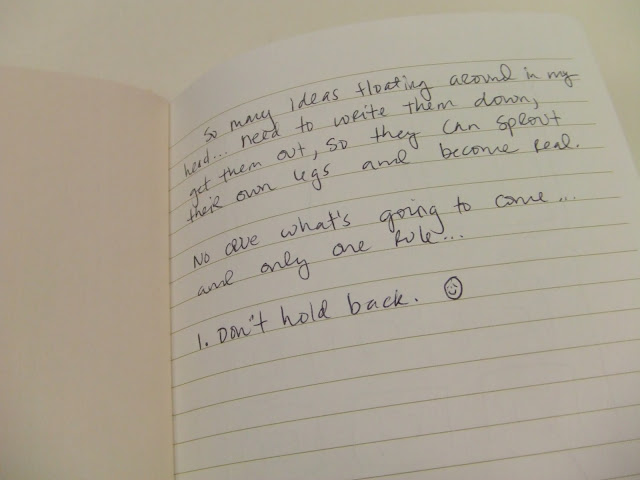 So many ideas floating around in my
head... need to write them down,
get them out, so they can sprout
their own legs and become real.
No clue what's going to come...
and only one rule...
1. Don't hold back. ☺